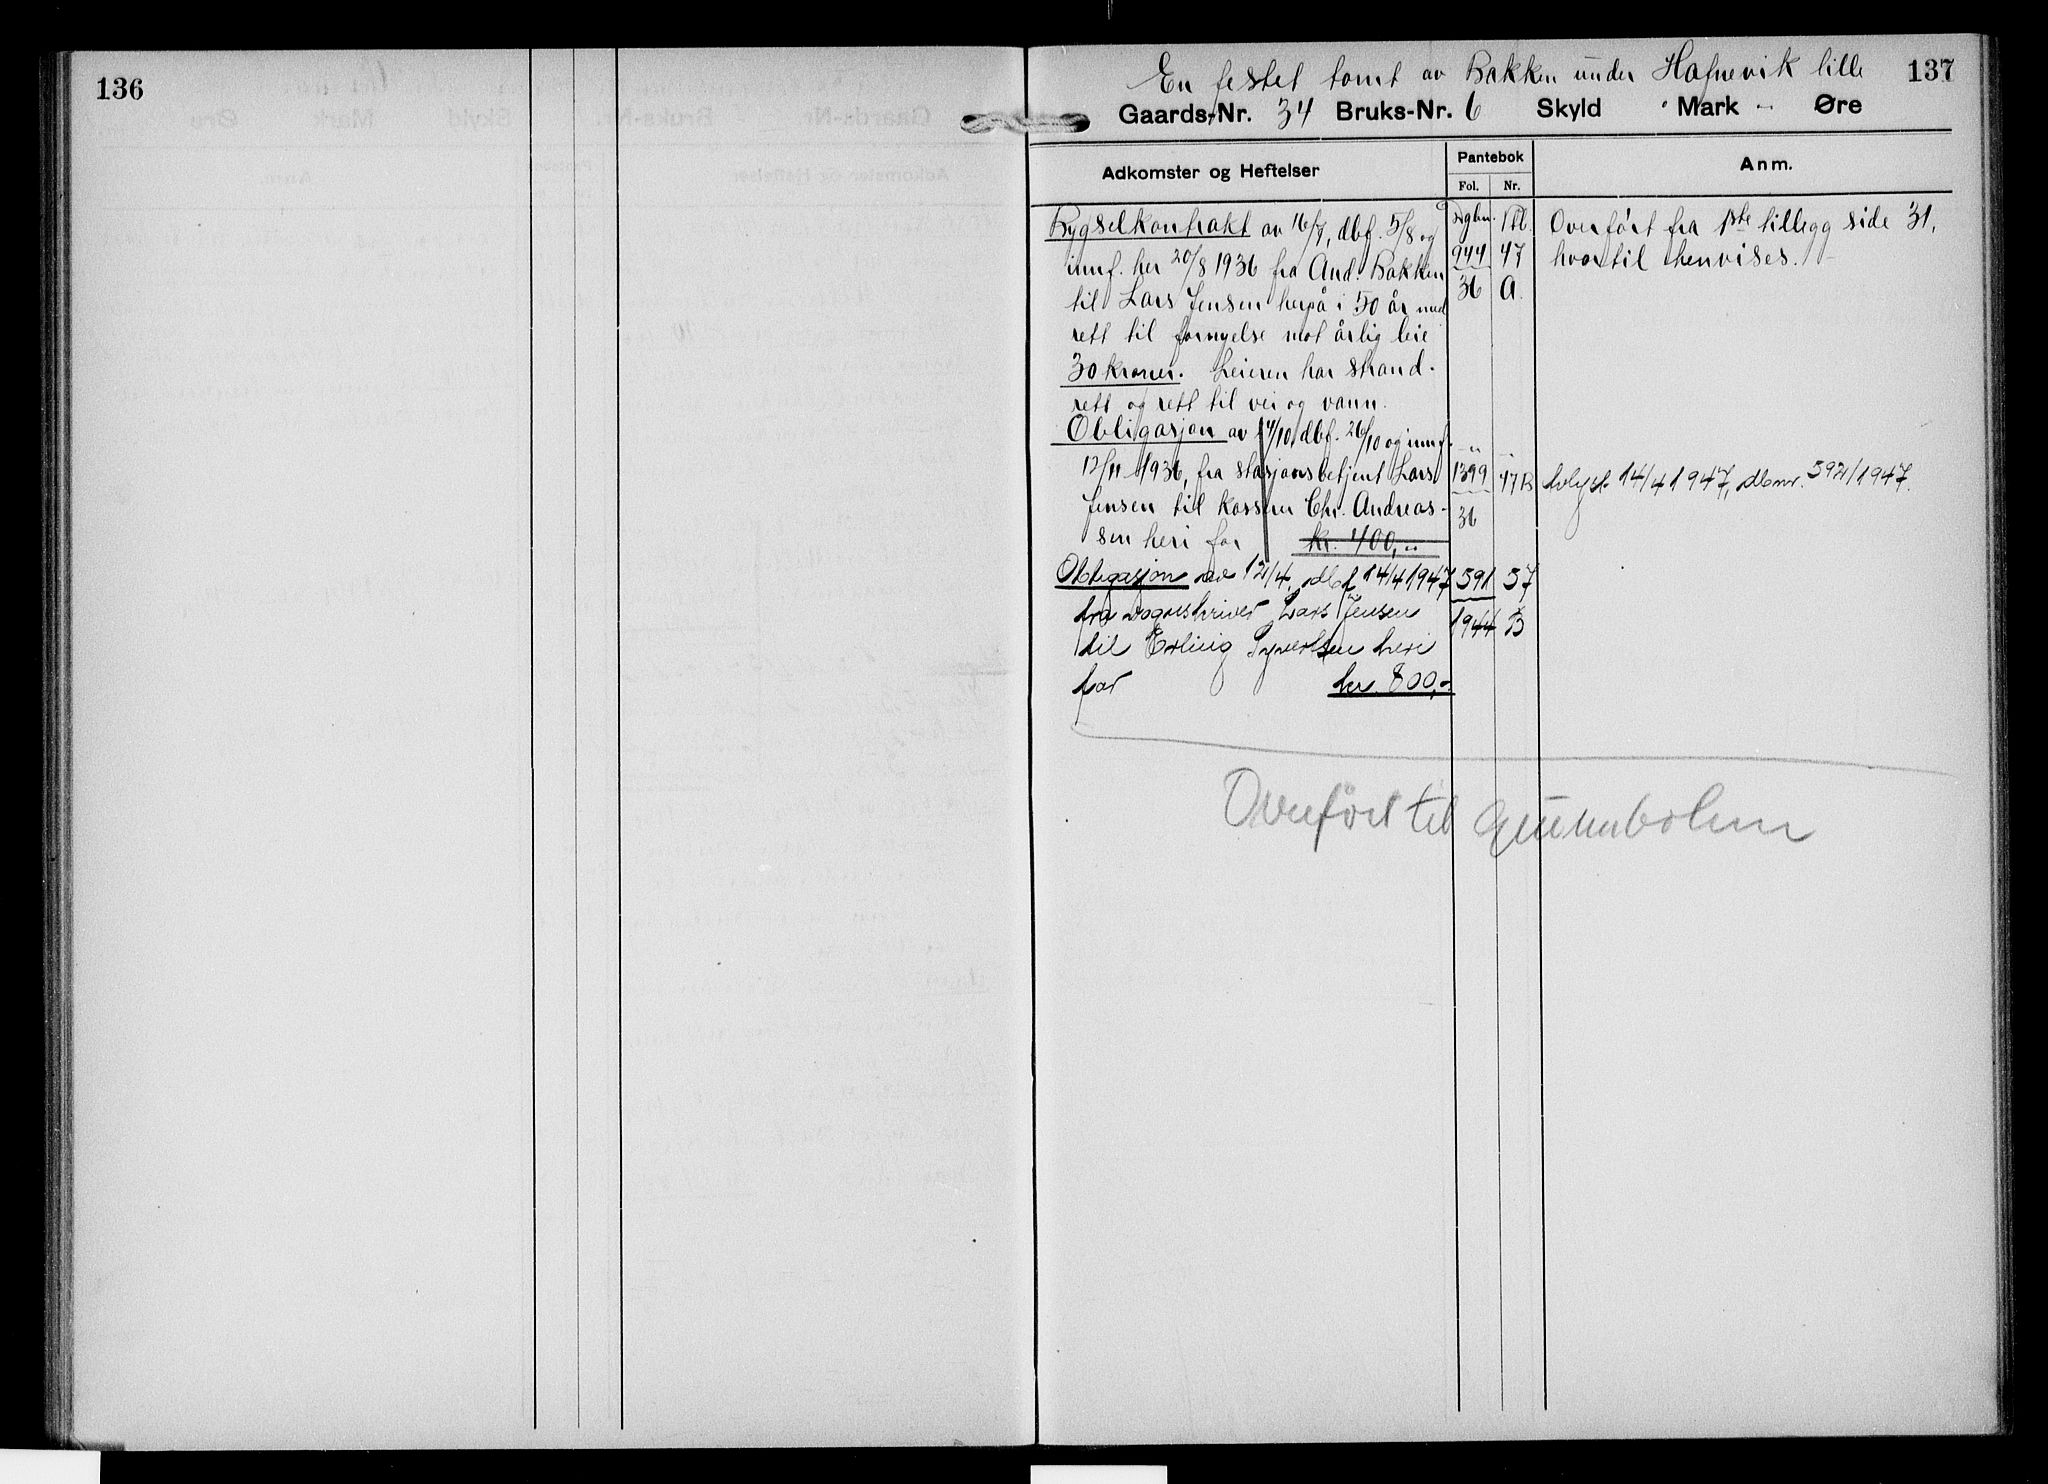 136
En festet tomt av Bakken under Hafnevik lille 137
Gaards-Nr. 34 Bruks-Nr. 6 Skyld Mark - Øre
Adkomster og Heftelser
Pantebok
Fol. Nr.
Anm.
Bygselkontrakt av 16/7, dbf. 5/8 og
innf. her 20/8 1936 fra And. Bakken
til Lars Jensen herpå i 50 år med
rett til fornyelse mot årlig leie
30 kroner. Leieren har strand-
rett og rett til vei og vann.
Dgbn. Ptb.
944 47
36 A.
Overført fra 1ste tillegg side 31,
hvortil henvises. -
Obligasjon av 14/10 dbf. 26/10 og innf.
12/11 1936, fra stasjonsbetjent Lars
Jensen til kasserer Chr. Andreas-
sen heri for kr. 400,-
1399 47 B
36
Avlyst 14/4 1947, dbnr. 592/1947.
Obligasjon av 12/4, dbf 14/4 1947
fra vognskriver Lars Jensen
til Erling Syvertsen heri
for kr 800,-
591 57
1944 B
Overført til Grunnboken